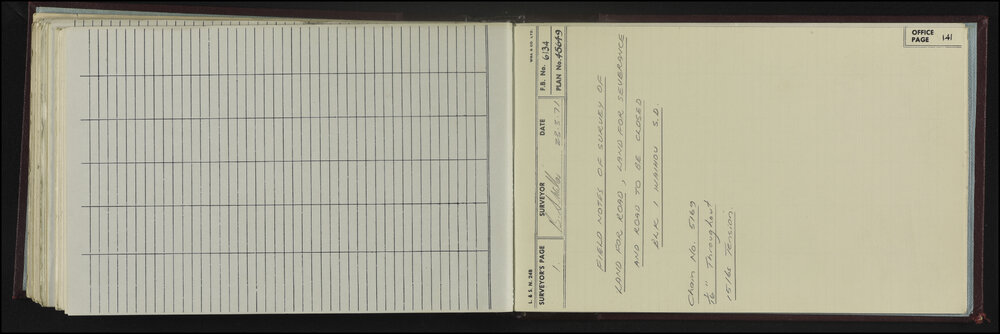 OFFICE PAGE 141
L. & S. N. 268
W&S. & CO. LTD.
SURVEYOR'S PAGE 1
SURVEYOR
DATE 25.5.71
F.B. No. 6134
PLAN No. 45649
FIELD NOTES OF SURVEY OF
LAND FOR ROAD, LAND FOR SEVERANCE
AND ROAD TO BE CLOSED
BLK I WAIHOU S.D
Chain No. 5169
Throughout
15 lbs Tension